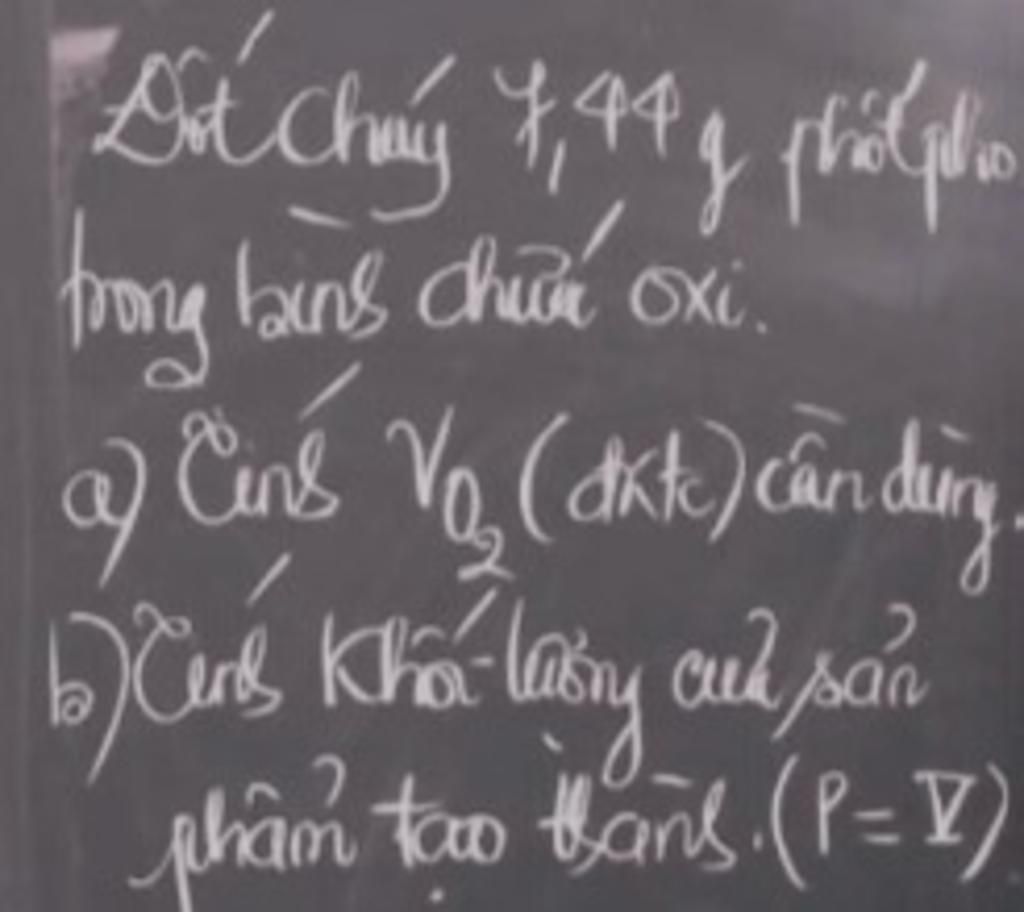 Đốt cháy 7,44 g phốtpho
trong bình chứa oxi.
a) Tính V O₂ (đktc) cần dùng.
b) Tính khối lượng của sản
phẩm tạo thành. (P = V)